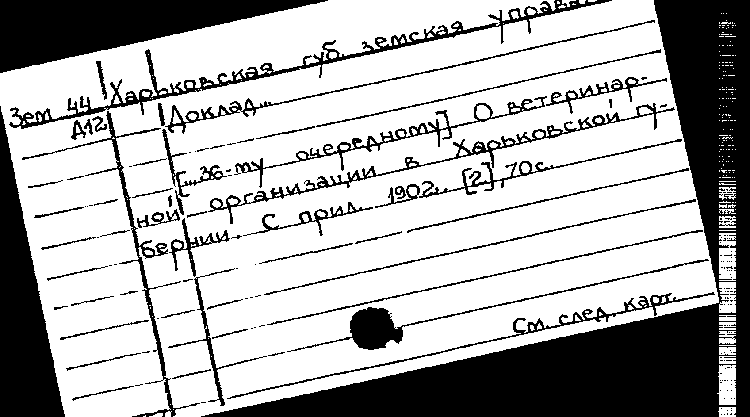 Зем 44 Харьковская губ. земская управа.
Д12 Доклад...
[...36-му очередному] О ветеринар-
ной организации в Харьковской гу-
бернии. С прил. 1902. [2], 70 с.
См. след. карт.